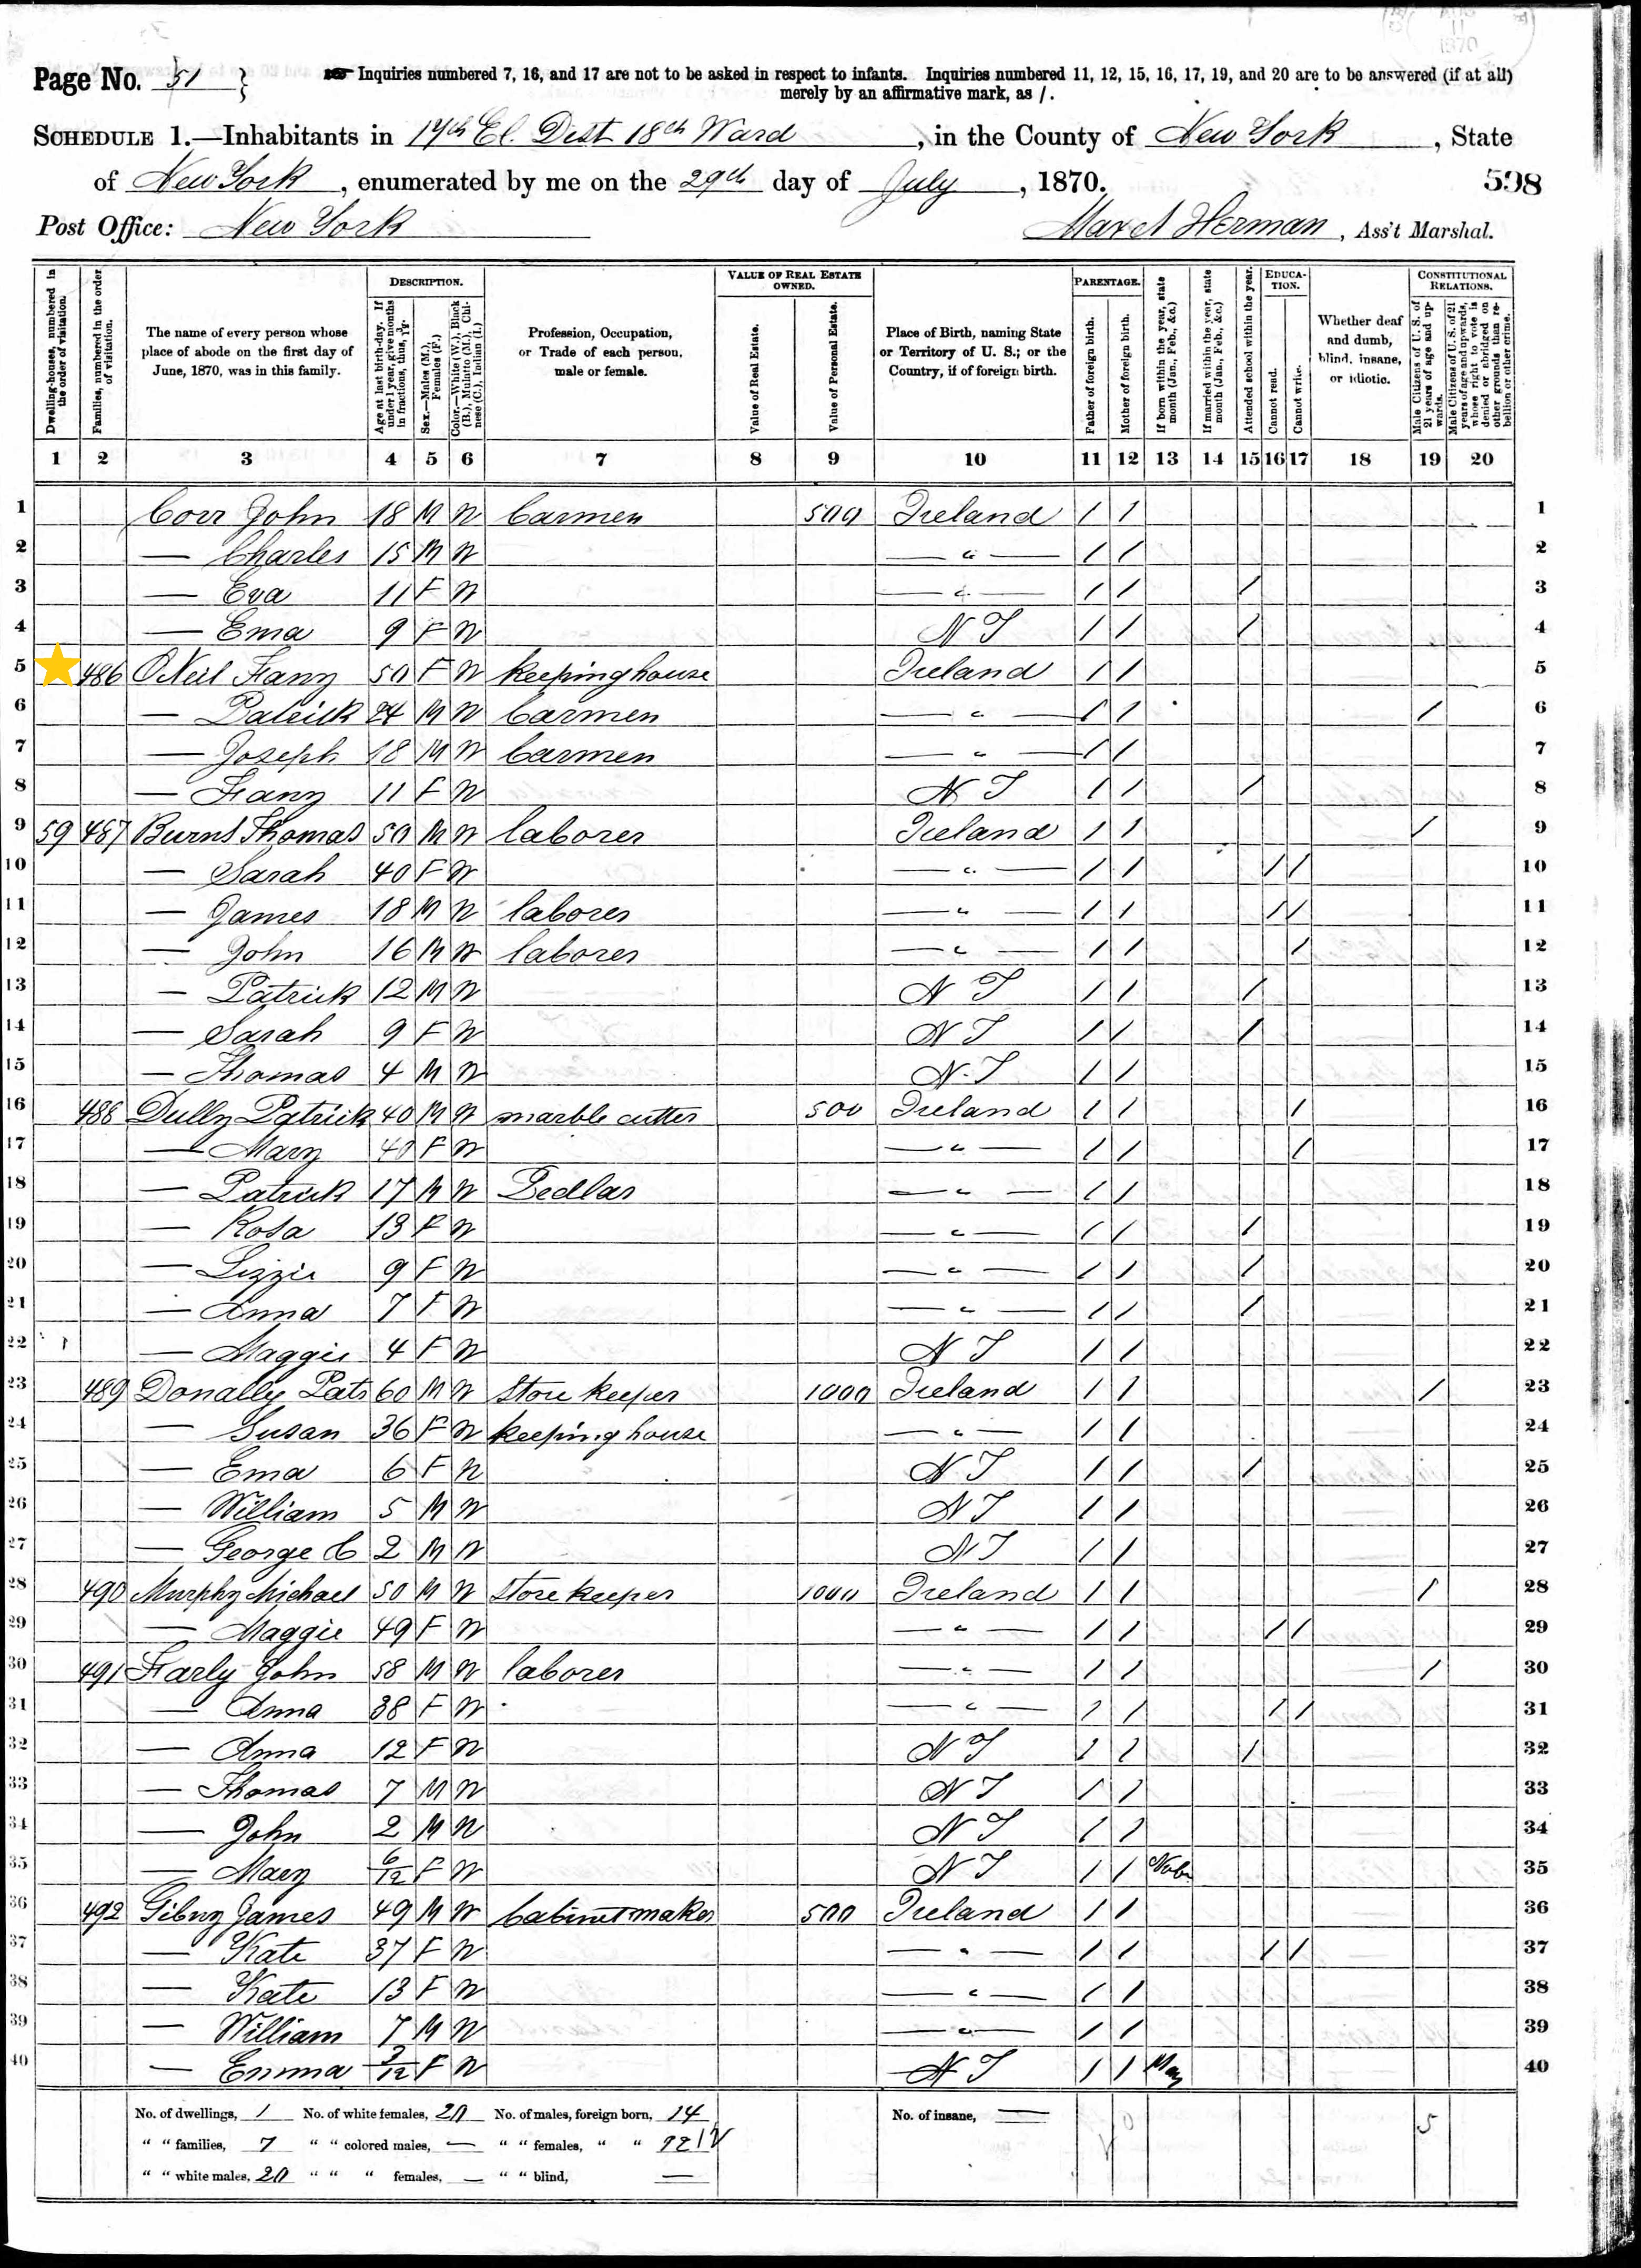 Page No. 51
Inquiries numbered 7, 16, and 17 are not to be asked in respect to infants. Inquiries numbered 11, 12, 15, 16, 17, 19, and 20 are to be answered (if at all)
merely by an affirmative mark, as /.
SCHEDULE 1.—Inhabitants in 17th El. Dist 18th Ward, in the County of New York, State
of New York, enumerated by me on the 29th day of July, 1870.
598
Post Office: New York
Herman, Ass't Marshal.
Dwelling-houses, numbered in the order of visitation.
Families, numbered in the order of visitation.
The name of every person whose place of abode on the first day of June, 1870, was in this family.
DESCRIPTION.
Age at last birth-day. If under 1 year, give months in fractions, thus, 3/12.
Sex.—Males (M.), Females (F.)
Color.—White (W.), Black (B.), Mulatto (M.), Chinese (C.), Indian (I.)
Profession, Occupation, or Trade of each person, male or female.
VALUE OF REAL ESTATE OWNED.
Value of Real Estate.
Value of Personal Estate.
Place of Birth, naming State or Territory of U. S.; or the Country, if of foreign birth.
PARENTAGE.
Father of foreign birth.
Mother of foreign birth.
If born within the year, state month (Jan., Feb., &c.)
If married within the year, state month (Jan., Feb., &c.)
Attended school within the year.
EDUCATION.
Cannot read.
Cannot write.
Whether deaf and dumb, blind, insane, or idiotic.
CONSTITUTIONAL RELATIONS.
Male Citizens of U. S. of 21 years of age and upwards.
Male Citizens of U. S. of 21 years of age and upwards, whose right to vote is denied or abridged on other grounds than rebellion or other crime.
1 2 3 4 5 6 7 8 9 10 11 12 13 14 15 16 17 18 19 20
1 Corr John 18 M W Carmen 500 Ireland / / 1
2 — Charles 15 M W — " — / / 2
3 — Eva 11 F W — " — / / / 3
4 — Ema 9 F W N Y / / / 4
5 486 ONeil Fany 50 F W keeping house Ireland / / 5
6 — Patrick 24 M W Carmen — " — / / / 6
7 — Joseph 18 M W Carmen — " — / / 7
8 — Fany 11 F W N Y / / / 8
9 59 487 Burns Thomas 50 M W laborer Ireland / / / 9
10 — Sarah 40 F W — " — / / / / 10
11 — James 18 M W laborer — " — / / / / 11
12 — John 16 M W laborer — " — / / / 12
13 — Patrick 12 M W N Y / / / 13
14 — Sarah 9 F W N Y / / / 14
15 — Thomas 4 M W N Y / / 15
16 488 Dully Patrick 40 M W marble cutter 500 Ireland / / / 16
17 — Mary 40 F W — " — / / / 17
18 — Patrick 17 M W Pedlar — " — / / 18
19 — Rosa 13 F W — " — / / / 19
20 — Lizzie 9 F W — " — / / / 20
21 — Anna 7 F W — " — / / / 21
22 — Maggie 4 F W N Y / / 22
23 489 Donally Patr 60 M W Store keeper 1000 Ireland / / / 23
24 — Susan 36 F W keeping house — " — / / 24
25 — Ema 6 F W N Y / / / 25
26 — William 5 M W N Y / / 26
27 — George C 2 M W N Y / / 27
28 490 Murphy Michael 50 M W Store keeper 1000 Ireland / / / 28
29 — Maggie 49 F W — " — / / / / 29
30 491 Farly John 58 M W laborer — " — / / / 30
31 — Anna 38 F W — " — / / / / 31
32 — Anna 12 F W N Y / / / 32
33 — Thomas 7 M W N Y / / 33
34 — John 2 M W N Y / / 34
35 — Mary 6/12 F W N Y / / 35
36 492 Gibny James 49 M W Cabinetmaker 500 Ireland / / 36
37 — Kate 37 F W — " — / / / / 37
38 — Kate 13 F W — " — / / 38
39 — William 7 M W — " — / / 39
40 — Emma F W N Y / / May 40
No. of dwellings, 1 No. of white females, 20 No. of males, foreign born, 14 No. of insane, — 5
" " families, 7 " " colored males, — " " females, " "
" " white males, 20 " " " females, — " " blind, —